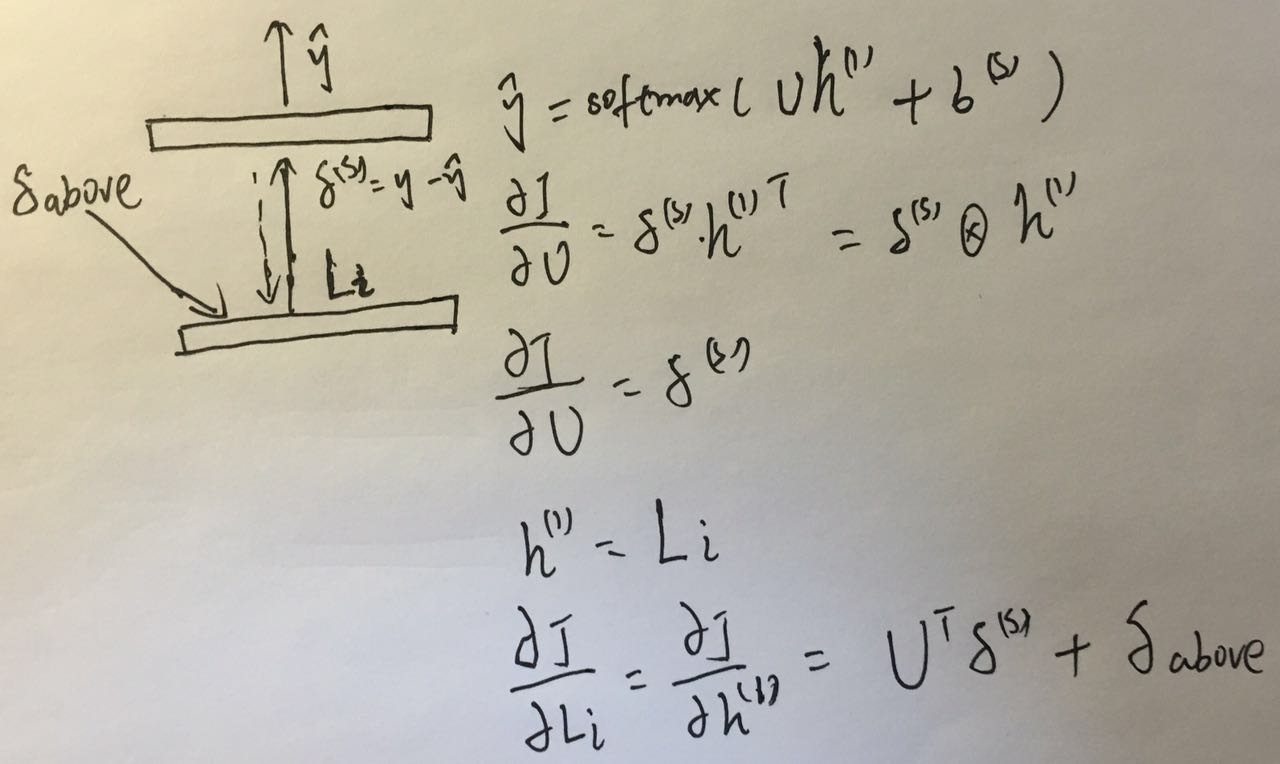 ŷ
δ^(s) = y - ŷ
δ above
Li
ŷ = softmax( U h^(1) + b^(s) )
∂J/∂U = δ^(s) · h^(1)T = δ^(s) ⊗ h^(1)
∂J/∂U = δ^(s)
h^(1) = Li
∂J/∂Li = ∂J/∂h^(1) = U^T δ^(s) + δ above